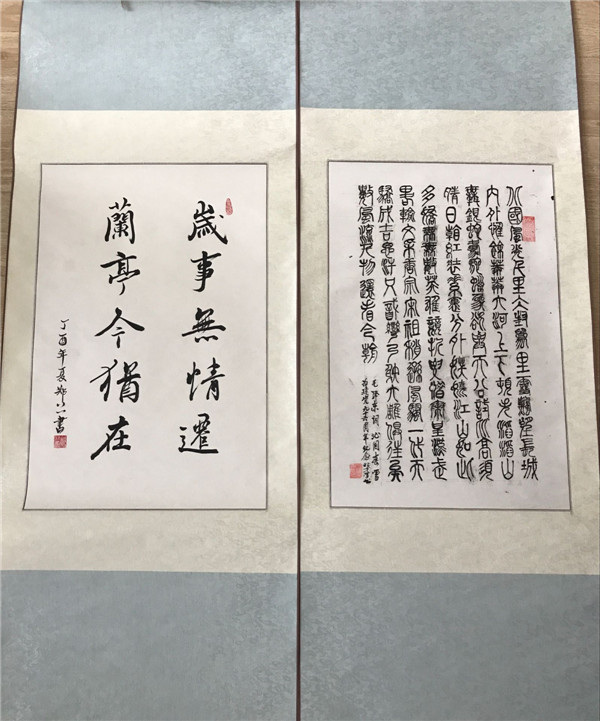 歲事無情遷
蘭亭今猶在
丁酉年夏
北國風光千里冰封萬里雪飄望長城
內外惟餘莽莽大河上下頓失滔滔山
舞銀蛇原馳蠟象欲與天公試比高須
晴日看紅裝素裹分外妖嬈江山如此
多嬌引無數英雄競折腰惜秦皇漢武
略輸文采唐宗宋祖稍遜風騷一代天
驕成吉思汗只識彎弓射大雕俱往矣
數風流人物還看今朝
毛澤東詞沁園春雪